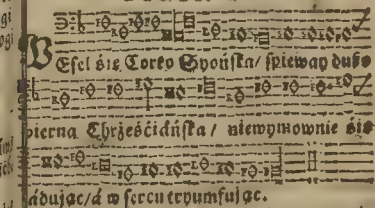 WEsel się Corko Syońska/ śpieway duſzo
wierna Chrześćiáńſka/ niewymownie się
ráduiąc/ á w sercu tryumfuiąc.